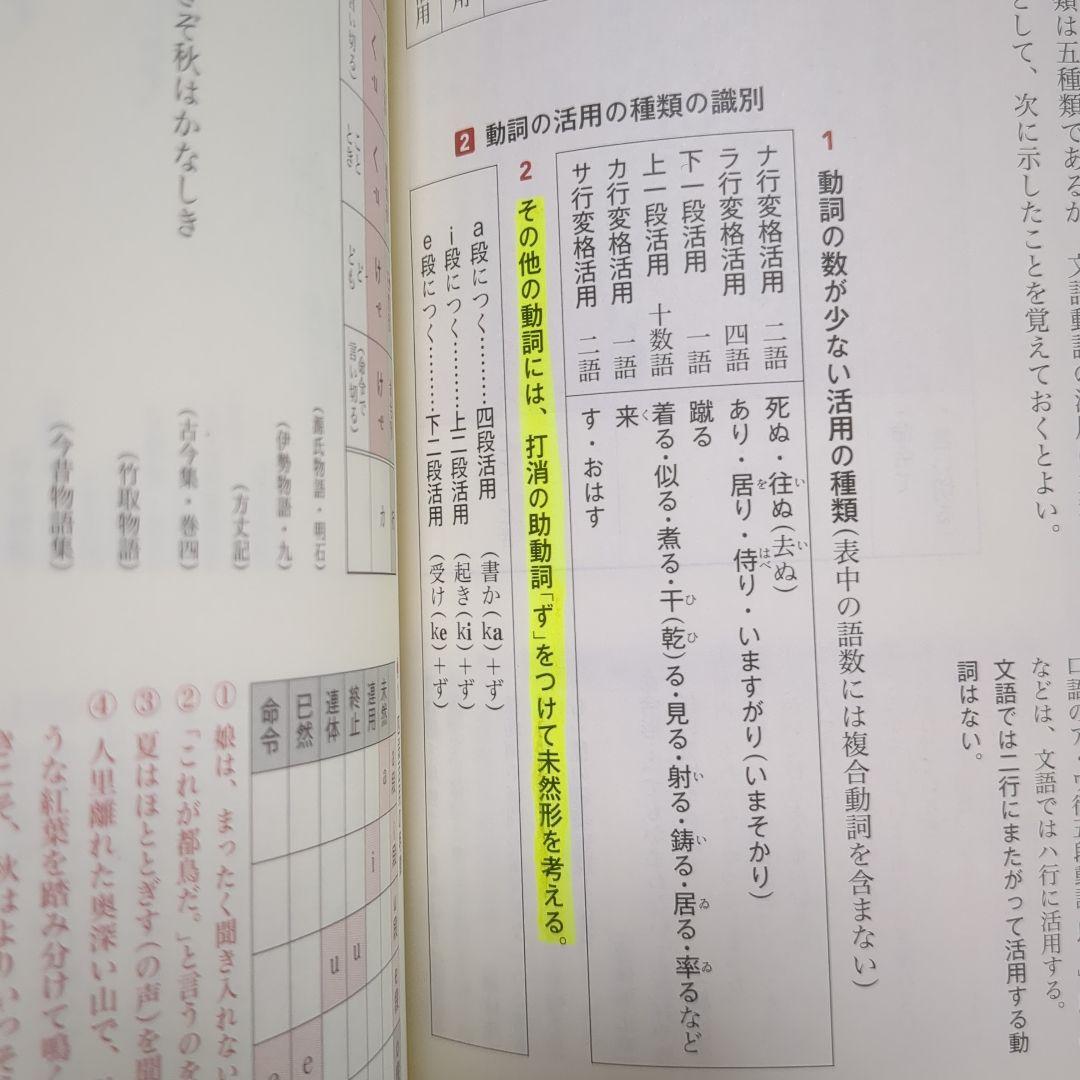 類は五種類であるが、文語動詞の活用
として、次に示したことを覚えておくとよい。
口語のア・ワ行五段動詞
などは、文語ではハ行に活用する。
文語では二行にまたがって活用する動
詞はない。
2 動詞の活用の種類の識別
1 動詞の数が少ない活用の種類(表中の語数には複合動詞を含まない)
ナ行変格活用 二語 死ぬ・往ぬ(去ぬ)
ラ行変格活用 四語 あり・居り・侍り・いますがり(いまそかり)
下一段活用 一語 蹴る
上一段活用 十数語 着る・似る・煮る・干(乾)る・見る・射る・鋳る・居る・率るなど
カ行変格活用 一語 来
サ行変格活用 二語 す・おはす
2 その他の動詞には、打消の助動詞「ず」をつけて未然形を考える。
a段につく………四段活用 (書か(ka)+ず)
i段につく………上二段活用 (起き(ki)+ず)
e段につく………下二段活用 (受け(ke)+ず)
ぞ秋はかなしき
(源氏物語・明石)
(伊勢物語・九)
(方丈記)
(古今集・巻四)
(竹取物語)
(今昔物語集)
く く け け
こと
とき
ど
ども
(命令で
言い切る)
未然 連用 終止 連体 已然 命令
a
i
u
u
e
① 娘は、まったく聞き入れない
② 「これが都鳥だ。」と言うのを
③ 夏はほととぎす(の声)を聞
④ 人里離れた奥深い山で、
うな紅葉を踏み分けて鳴く
きこそ、秋はよりいっそ